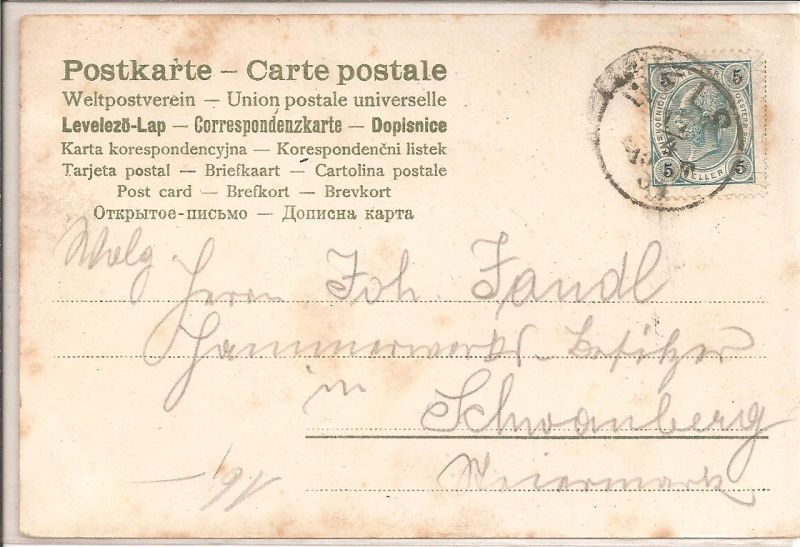 Postkarte – Carte postale
Weltpostverein — Union postale universelle
Levelező-Lap — Correspondenzkarte — Dopisnice
Karta korespondencyjna — Korespondenčni listek
Tarjeta postal — Briefkaart — Cartolina postale
Post card — Brefkort — Brevkort
Открытое-письмо — Дописна карта
5 5
5 HELLER 5
Wolg
Herrn Joh. Jandl
Hammerwerks-Besitzer
in
Schwanberg
Steiermark